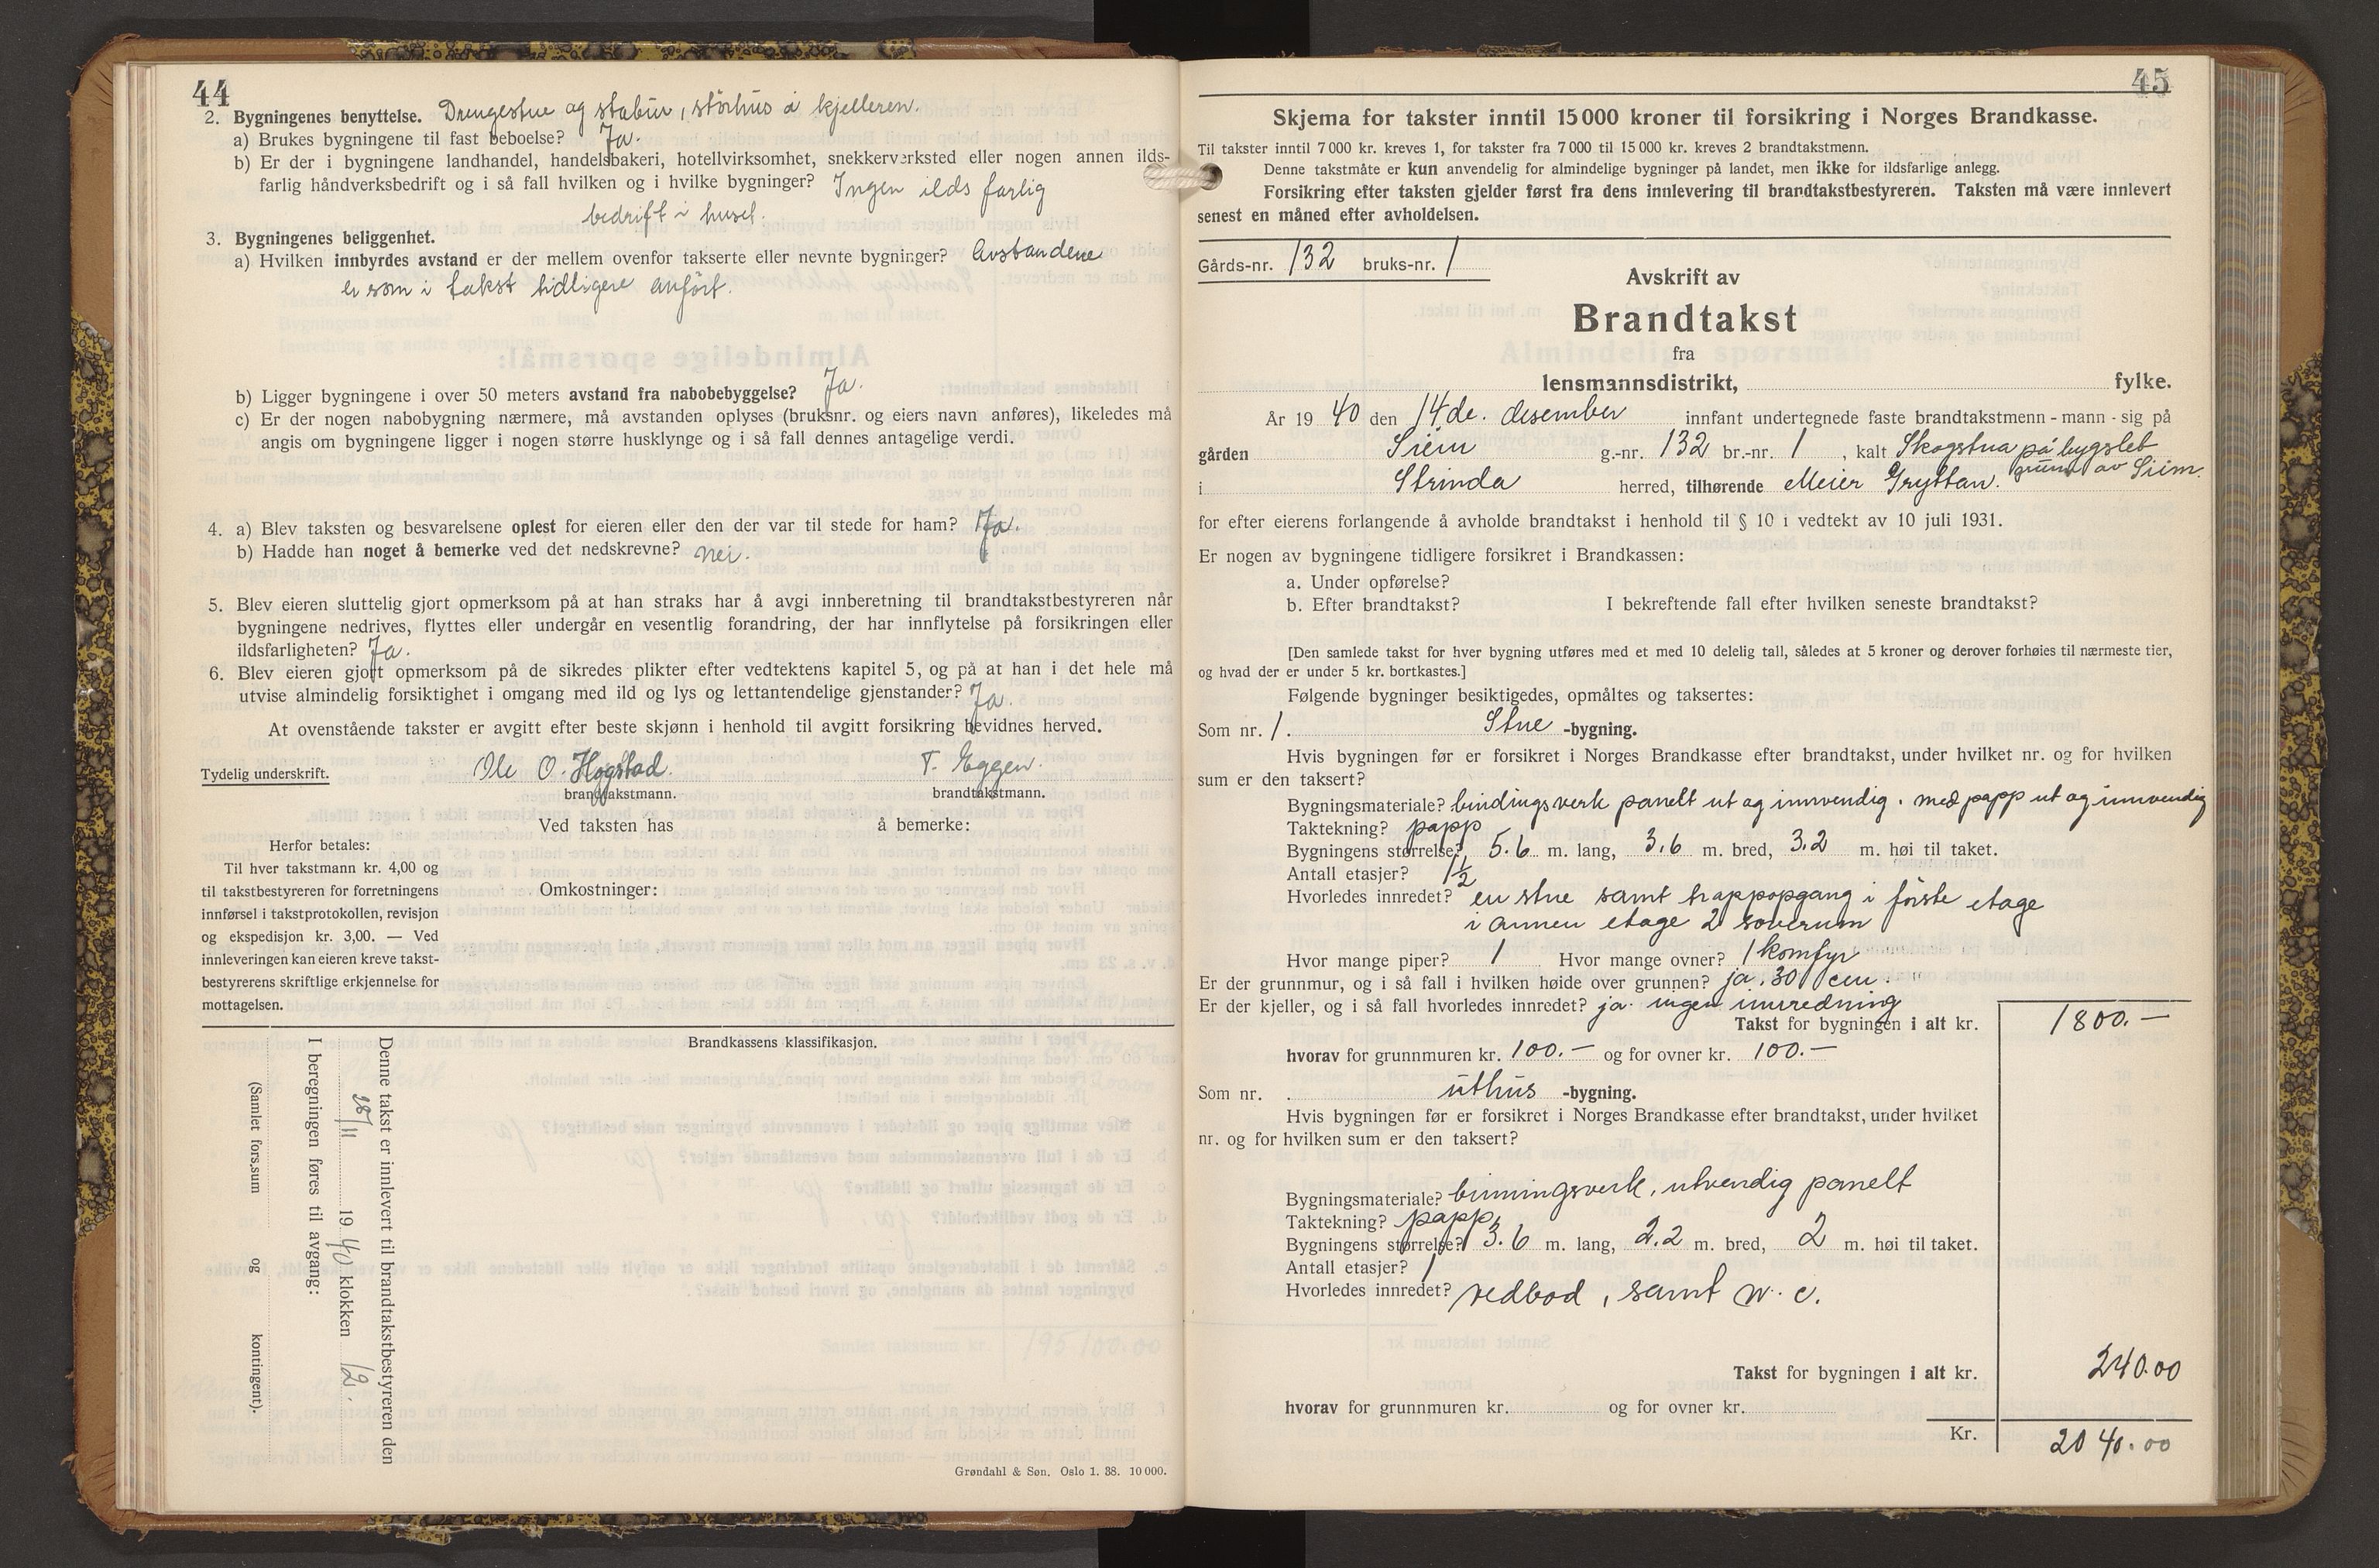 44
2. Bygningenes benyttelse. Drengestue og stabur, störhus i kjelleren.
a) Brukes bygningene til fast beboelse? Ja.
b) Er der i bygningene landhandel, handelsbakeri, hotellvirksomhet, snekkerverksted eller nogen annen ilds-
farlig håndverksbedrift og i så fall hvilken og i hvilke bygninger? Ingen ilds farlig
bedrift i huset.
3. Bygningenes beliggenhet.
a) Hvilken innbyrdes avstand er der mellem ovenfor takserte eller nevnte bygninger? Avstandene
er som i takst tidligere anfört.
b) Ligger bygningene i over 50 meters avstand fra nabobebyggelse? Ja.
c) Er der nogen nabobygning nærmere, må avstanden oplyses (bruksnr. og eiers navn anføres), likeledes må
angis om bygningene ligger i nogen større husklynge og i så fall dennes antagelige verdi.
4. a) Blev taksten og besvarelsene oplest for eieren eller den der var til stede for ham? Ja.
b) Hadde han noget å bemerke ved det nedskrevne? nei.
5. Blev eieren sluttelig gjort opmerksom på at han straks har å avgi innberetning til brandtakstbestyreren når
bygningene nedrives, flyttes eller undergår en vesentlig forandring, der har innflytelse på forsikringen eller
ildsfarligheten? Ja.
6. Blev eieren gjort opmerksom på de sikredes plikter efter vedtektens kapitel 5, og på at han i det hele må
utvise almindelig forsiktighet i omgang med ild og lys og lettantendelige gjenstander? Ja.
At ovenstående takster er avgitt efter beste skjønn i henhold til avgitt forsikring bevidnes herved.
Tydelig underskrift. Ole O. Hogstad. T. Eggen.
brandtakstmann. brandtakstmann.
Ved taksten has å bemerke:
Herfor betales:
Til hver takstmann kr. 4,00 og
til takstbestyreren for forretningens
innførsel i takstprotokollen, revisjon
og ekspedisjon kr. 3,00. — Ved
innleveringen kan eieren kreve takst-
bestyrerens skriftlige erkjennelse for
mottagelsen.
Omkostninger:
Brandkassens klassifikasjon.
Denne takst er innlevert til brandtakstbestyreren den
28/11 19 40 klokken 12.
I beregningen føres til avgang:
(Samlet fors.sum og kontingent).
Grøndahl & Søn. Oslo 1. 38. 10 000.
45
Skjema for takster inntil 15 000 kroner til forsikring i Norges Brandkasse.
Til takster inntil 7 000 kr. kreves 1, for takster fra 7 000 til 15 000 kr. kreves 2 brandtakstmenn.
Denne takstmåte er kun anvendelig for almindelige bygninger på landet, men ikke for ildsfarlige anlegg.
Forsikring efter taksten gjelder først fra dens innlevering til brandtakstbestyreren. Taksten må være innlevert
senest en måned efter avholdelsen.
Gårds-nr. 132 bruks-nr. 1
Avskrift av
Brandtakst
fra
lensmannsdistrikt, fylke.
År 19 40 den 14de. desember innfant undertegnede faste brandtakstmenn - mann - sig på
gården Siem g.-nr. 132 br.-nr. 1, kalt Skogstua på bygslet
grunn av Siem.
i Strinda herred, tilhørende Meier Gryttan.
for efter eierens forlangende å avholde brandtakst i henhold til § 10 i vedtekt av 10 juli 1931.
Er nogen av bygningene tidligere forsikret i Brandkassen:
a. Under opførelse?
b. Efter brandtakst? I bekreftende fall efter hvilken seneste brandtakst?
[Den samlede takst for hver bygning utføres med et med 10 delelig tall, således at 5 kroner og derover forhøies til nærmeste tier,
og hvad der er under 5 kr. bortkastes.]
Følgende bygninger besiktigedes, opmåltes og taksertes:
Som nr. 1. Stue -bygning.
Hvis bygningen før er forsikret i Norges Brandkasse efter brandtakst, under hvilket nr. og for hvilken
sum er den taksert?
Bygningsmateriale? bindingsverk panelt ut og innvendig. med papp ut og innvendig
Taktekning? papp
Bygningens størrelse? 5.6 m. lang, 3.6 m. bred, 3.2 m. høi til taket.
Antall etasjer? 1 1/2
Hvorledes innredet? en stue samt trappopgang i förste etage
i annen etage 2 soverum
Hvor mange piper? 1 Hvor mange ovner? 1 komfyr
Er der grunnmur, og i så fall i hvilken høide over grunnen? ja. 30 cm.
Er der kjeller, og i så fall hvorledes innredet? ja. ingen innredning
Takst for bygningen i alt kr. 1800.—
hvorav for grunnmuren kr. 100.— og for ovner kr. 100.—
Som nr. . uthus -bygning.
Hvis bygningen før er forsikret i Norges Brandkasse efter brandtakst, under hvilket
nr. og for hvilken sum er den taksert?
Bygningsmateriale? binningsverk, utvendig panelt
Taktekning? papp
Bygningens størrelse? 3.6 m. lang, 2.2 m. bred, 2 m. høi til taket.
Antall etasjer? 1
Hvorledes innredet? vedbod, samt w.c.
Takst for bygningen i alt kr. 240.00
hvorav for grunnmuren kr. og for ovner kr.
Kr. 2040.00